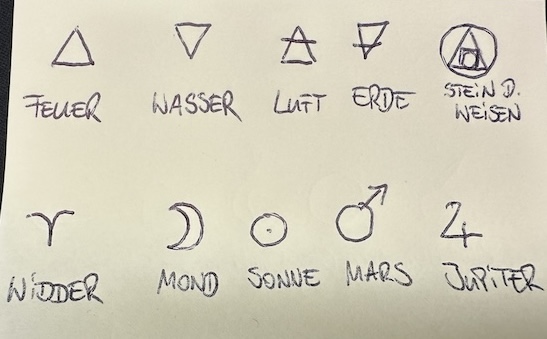 FEUER WASSER LUFT ERDE STEIN D.
WEISEN
WIDDER MOND SONNE MARS JUPITER